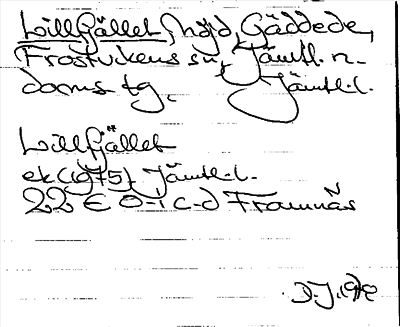 Lillfjället, höjd, Gäddede,
Frostvikens sn, Jämtl. n.
doms tg, Jämtl. l.
Lillfjället
ek (1975) Jämtl. l.
22 E 0-1 c-d Framnäs
D.J. 1979